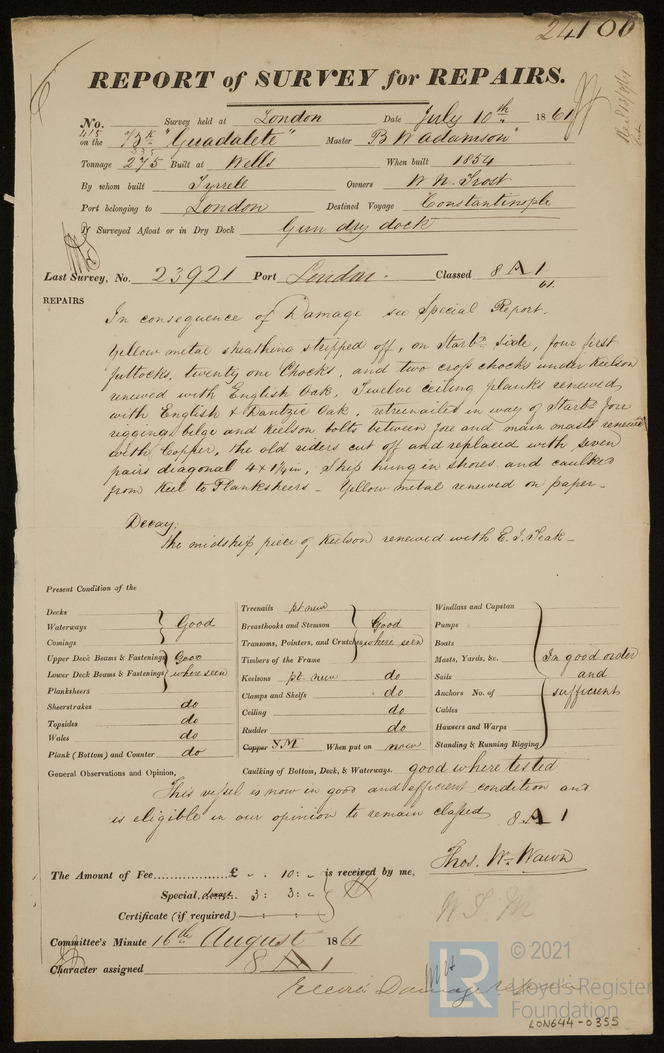 24100
REPORT of SURVEY for REPAIRS.
No. Survey held at London Date July 10th 1861
415 on the Bk "Guadalete" Master B W adamson
Tonnage 275 Built at Wells When built 1854
By whom built Tyrrell Owners W N Frost
Port belonging to London Destined Voyage Constantinople
If Surveyed Afloat or in Dry Dock Gun dry dock
Last Survey, No. 23921 Port London. Classed 8 A 1
61.
REPAIRS
In consequence of Damage see Special Report.
Yellow metal sheathing stripped off, on Starbd Side, four first
futtocks, twenty one Chocks, and two cross chocks under Keelson
renewed with English Oak, Twelve ceiling planks renewed
with English & Dantzic Oak, retreenailed in way of Starbd fore
rigging, bilge and keelson bolts between fore and main masts renewed
with Copper, the old riders cut off and replaced with seven
pairs diagonal 4 x 1¼ in, Ship hung in shores and caulked
from Keel to Planksheers - Yellow metal renewed on paper -
Decay;
the midship piece of Keelson renewed with E. I. Teak -
Present Condition of the
Decks
Waterways Good
Comings
Upper Deck Beams & Fastenings Good
Lower Deck Beams & Fastenings where seen
Planksheers
Sheerstrakes do
Topsides do
Wales do
Plank (Bottom) and Counter do
Treenails pt new
Breasthooks and Stemson Good
Transoms, Pointers, and Crutches where seen
Timbers of the Frame
Keelsons pt new do
Clamps and Shelfs do
Ceiling do
Rudder do
Copper Y.M When put on now
Windlass and Capstan
Pumps
Boats
Masts, Yards, &c. In good order
Sails and
Anchors No. of sufficient
Cables
Hawsers and Warps
Standing & Running Rigging
General Observations and Opinion, Caulking of Bottom, Deck, & Waterways. good where tested
This vessel is now in good and efficient condition and
is eligible in our opinion to remain classed 8 A 1
Thos. Wm Wawn
The Amount of Fee £ " . 10: " is received by me,
Special damage. 3: 3: "
Certificate (if required)
W S M
Committee's Minute 16th August 1861
Character assigned 8 A 1
© 2021
LR
Lloyd's Register
Foundation
LON644-0355